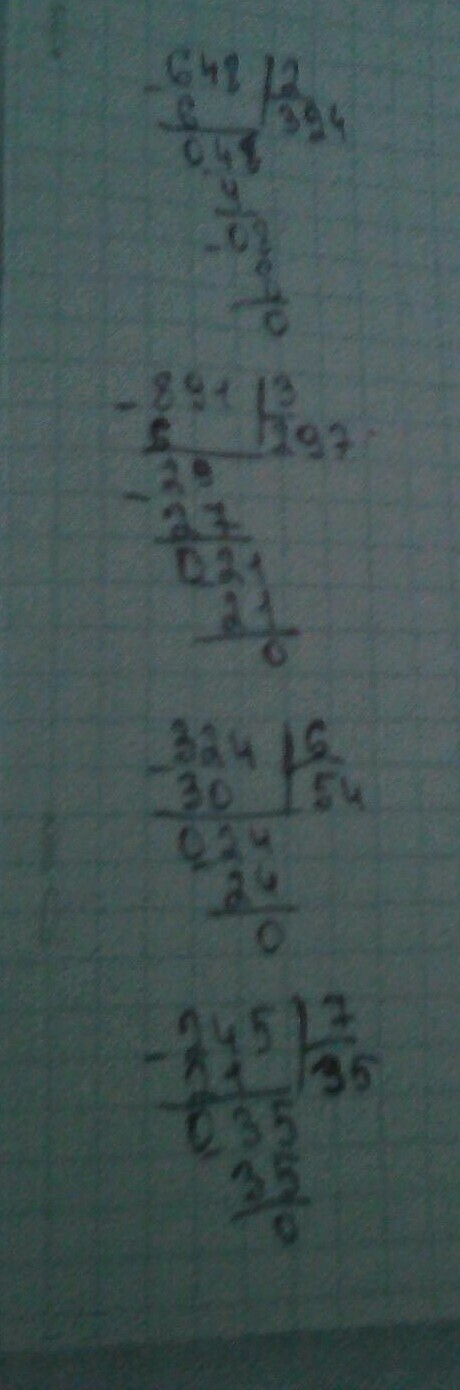 -648 | 2
6 | 394
048
4
-08
8
0
-891 | 3
6 | 297
-29
27
021
21
0
-324 | 6
30 | 54
024
24
0
-245 | 7
21 | 35
035
35
0